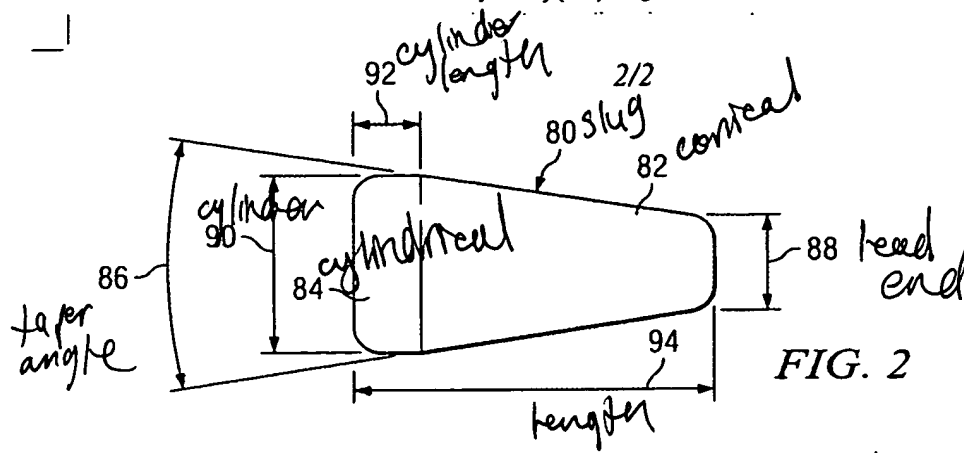 92 cylinder
length
2/2
80 slug
82 conical
cylinder
90
cylindrical
84
86
88 lead
end
taper
angle
94
length
FIG. 2